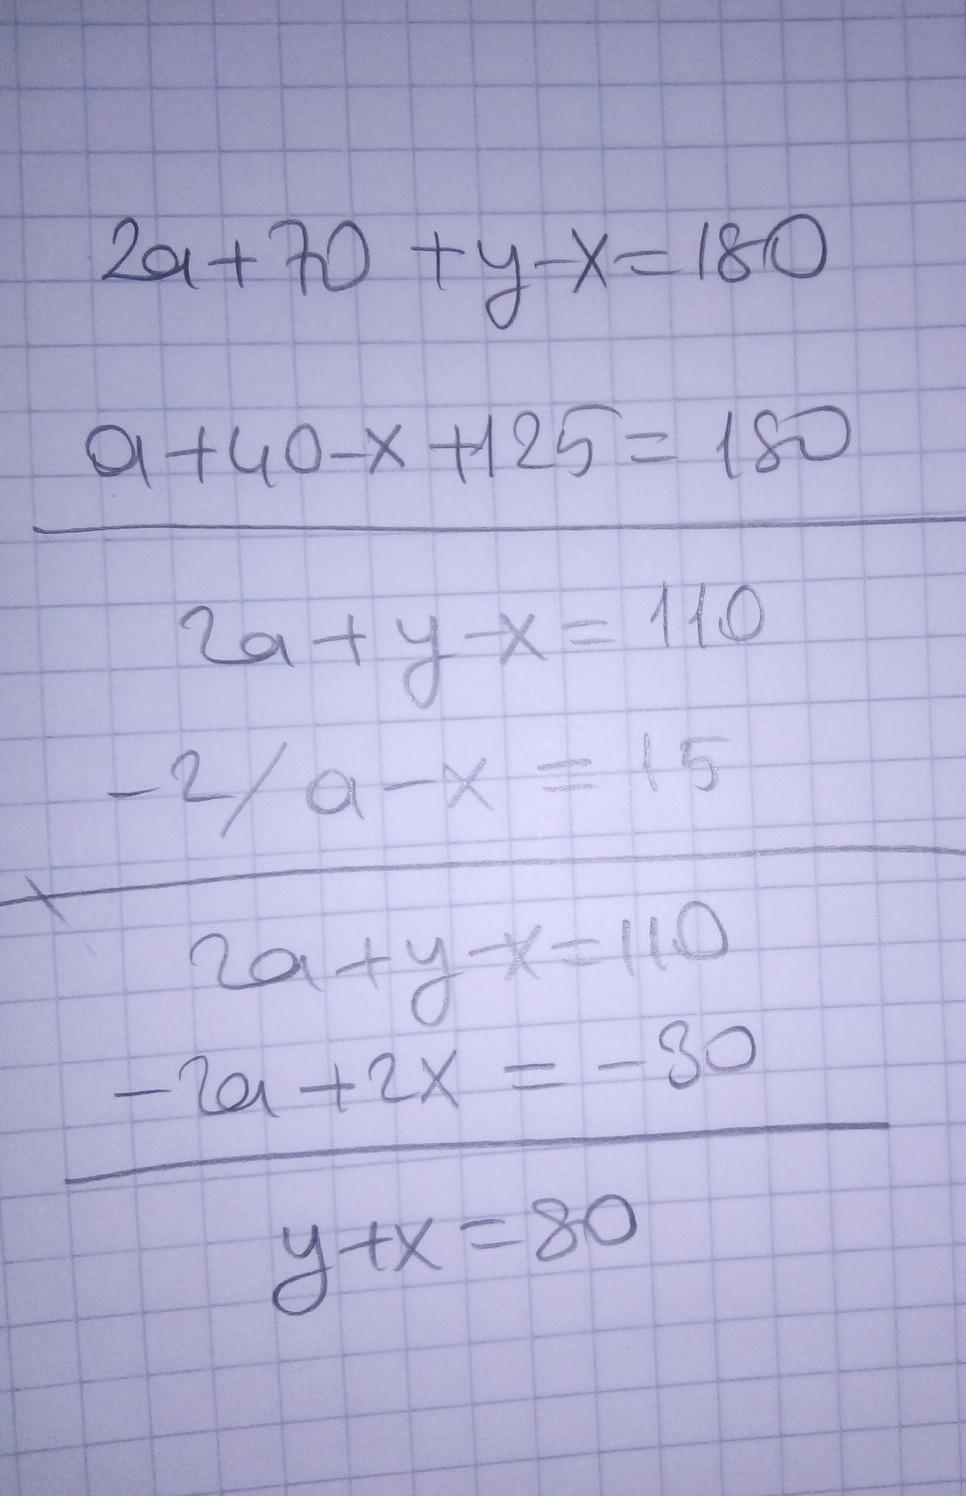 2a+70+y-x=180
a+40-x+125=180
2a+y-x=110
-2/a-x=15
2a+y-x=110
-2a+2x=-30
y+x=80